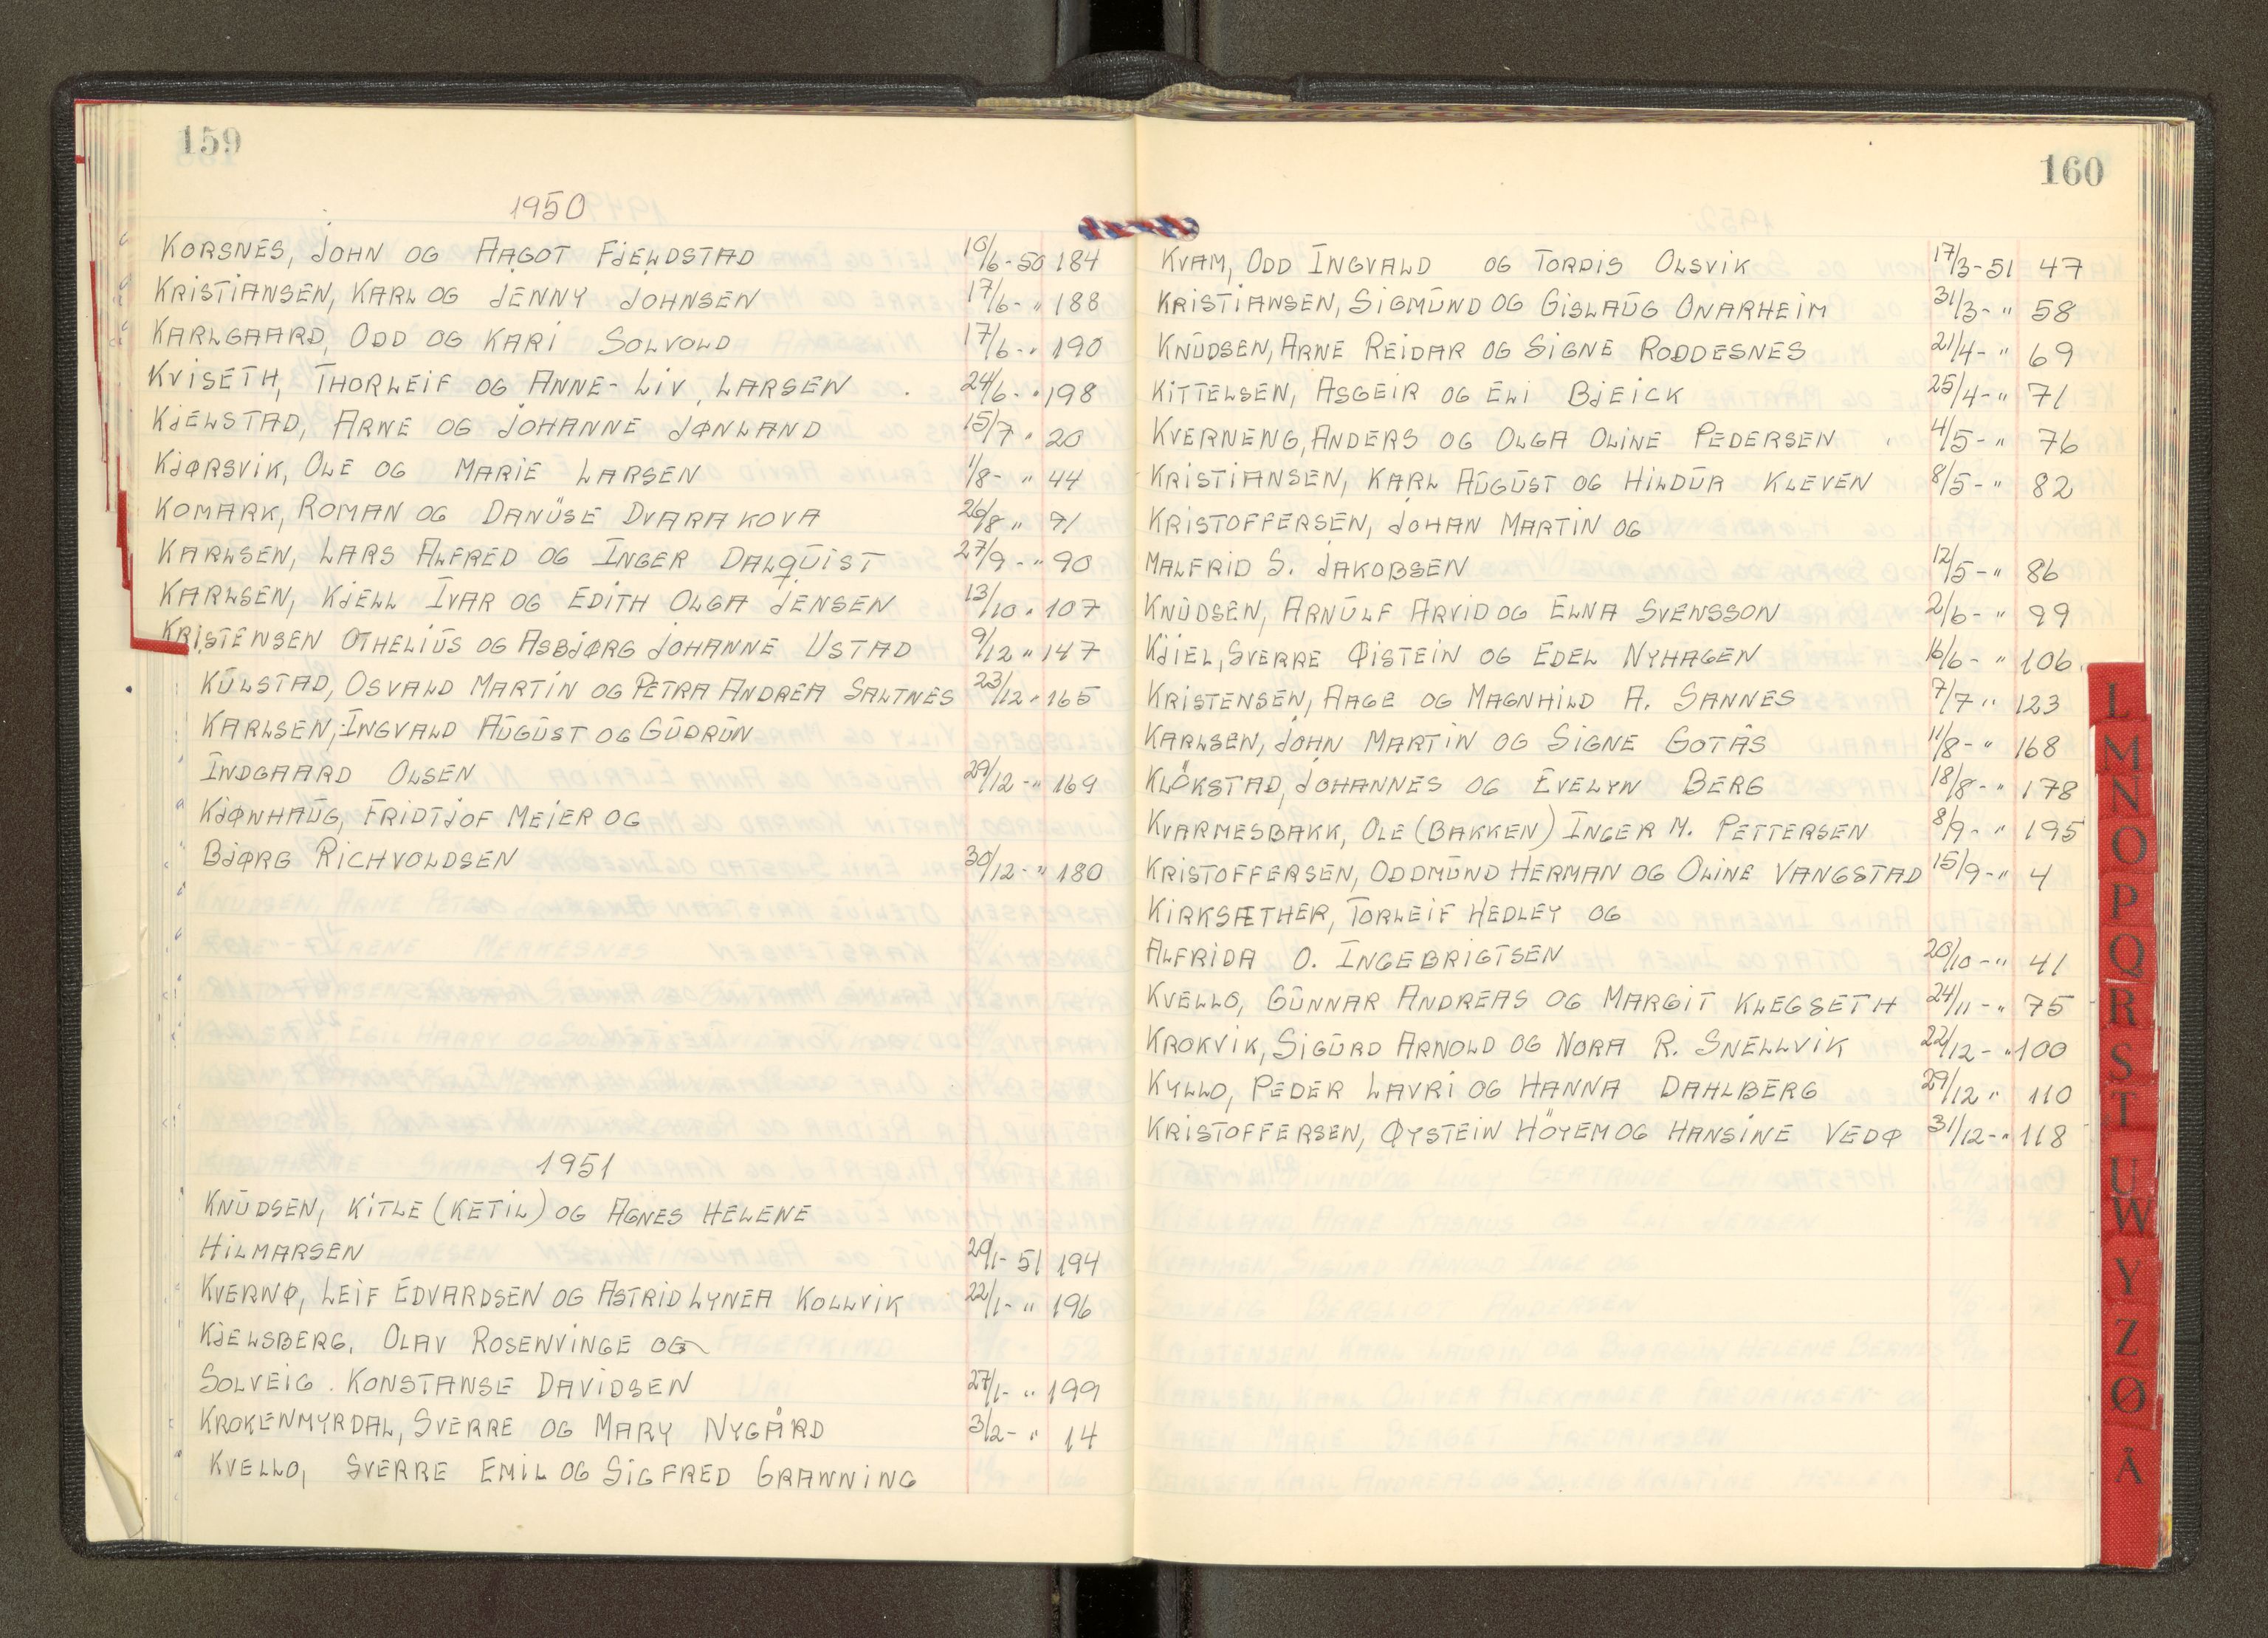 159
1950
KORSNES, JOHN OG AAGOT FJELDSTAD 10/6-50 184
KRISTIANSEN, KARL OG JENNY JOHNSEN 17/6-" 188
KARLGAARD, ODD OG KARI SOLVOLD 17/6-" 190
KVISETH, THORLEIF OG ANNE-LIV LARSEN 24/6-" 198
KJELSTAD, ARNE OG JOHANNE JØNLAND 15/7 " 20
KJØRSVIK, OLE OG MARIE LARSEN 1/8- " 44
KOMARK, ROMAN OG DANŪSE DVARAKOVA 26/8 " 71
KARLSEN, LARS ALFRED OG INGER DALQŪIST 27/9-" 90
KARLSEN, KJELL IVAR OG EDITH OLGA JENSEN 13/10 " 107
KRISTENSEN OTHELIŪS OG ASBJØRG JOHANNE USTAD 9/12 " 147
KŪLSTAD, OSVALD MARTIN OG PETRA ANDREA SALTNES 23/12 " 165
KARLSEN, INGVALD AŪGŪST OG GŪDRŪN
INDGAARD OLSEN 29/12-" 169
KJØNHAŪG, FRIDTJOF MEIER OG
BJØRG RICHVOLDSEN 30/12-" 180
1951
KNŪDSEN, KITLE (KETIL) OG AGNES HELENE
HILMARSEN 29/1-51 194
KVERNØ, LEIF EDVARDSEN OG ASTRID LYNEA KOLLVIK 22/1-" 196
KJELSBERG, OLAV ROSENVINGE OG
SOLVEIG. KONSTANSE DAVIDSEN 27/1-" 199
KROKENMYRDAL, SVERRE OG MARY NYGÅRD 3/2-" 14
KVELLO, SVERRE EMIL OG SIGFRED GRANNING
160
KVAM, ODD INGVALD OG TORDIS OLSVIK 17/3-51 47
KRISTIANSEN, SIGMŪND OG GISLAŪG ONARHEIM 31/3-" 58
KNŪDSEN, ARNE REIDAR OG SIGNE RODDESNES 21/4-" 69
KITTELSEN, ASGEIR OG ELI BJEICK 25/4-" 71
KVERNENG, ANDERS OG OLGA OLINE PEDERSEN 4/5-" 76
KRISTIANSEN, KARL AŪGŪST OG HILDŪR KLEVEN 8/5-" 82
KRISTOFFERSEN, JOHAN MARTIN OG
MALFRID S. JAKOBSEN 12/5-" 86
KNŪDSEN, ARNŪLF ARVID OG ELNA SVENSSON 2/6-" 99
KJIEL, SVERRE ØISTEIN OG EDEL NYHAGEN 16/6-" 106
KRISTENSEN, AAGE OG MAGNHILD A. SANNES 7/7 " 123
KARLSEN, JOHN MARTIN OG SIGNE GOTÅS 11/8-" 168
KLÖKSTAD, JOHANNES OG EVELYN BERG 18/8-" 178
KVARMESBAKK, OLE (BAKKEN) INGER M. PETTERSEN 8/9-" 195
KRISTOFFERSEN, ODDMŪND HERMAN OG OLINE VANGSTAD 15/9-" 4
KIRKSÆTHER, TORLEIF HEDLEY OG
ALFRIDA O. INGEBRIGTSEN 20/10-" 41
KVELLO, GŪNNAR ANDREAS OG MARGIT KLEGSETH 24/11-" 75
KROKVIK, SIGŪRD ARNOLD OG NORA R. SNELLVIK 22/12-" 100
KYLLO, PEDER LAVRI OG HANNA DAHLBERG 29/12 " 110
KRISTOFFERSEN, ØYSTEIN HÖYEM OG HANSINE VEDØ 31/12-" 118
L
M
N
O
P
Q
R
S
T
U
W
Y
Z
Ø
Å